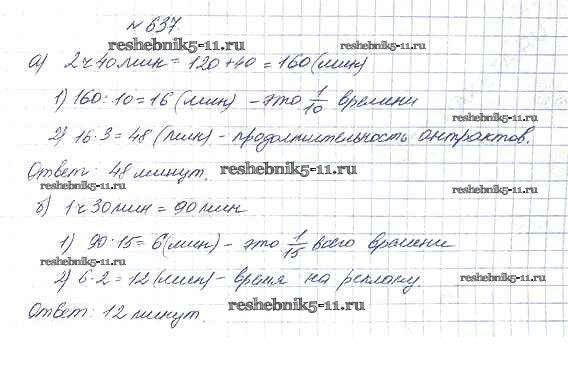 №637
reshebnik5-11.ru
а) 2ч40мин = 120+40 = 160 (мин)
1) 160:10=16 (мин) - это 1/10 времени
reshebnik5-11.ru reshebnik5-11.ru
2) 16·3=48 (мин) - продолжительность антрактов.
Ответ: 48 минут. reshebnik5-11.ru
reshebnik5-11.ru reshebnik5-11.ru
б) 1ч30мин = 90мин
1) 90:15=6(мин) - это 1/15 всего времени
reshebnik5-11.ru
2) 6·2=12(мин) - время на рекламу. reshebnik5-11.ru
Ответ: 12 минут. reshebnik5-11.ru